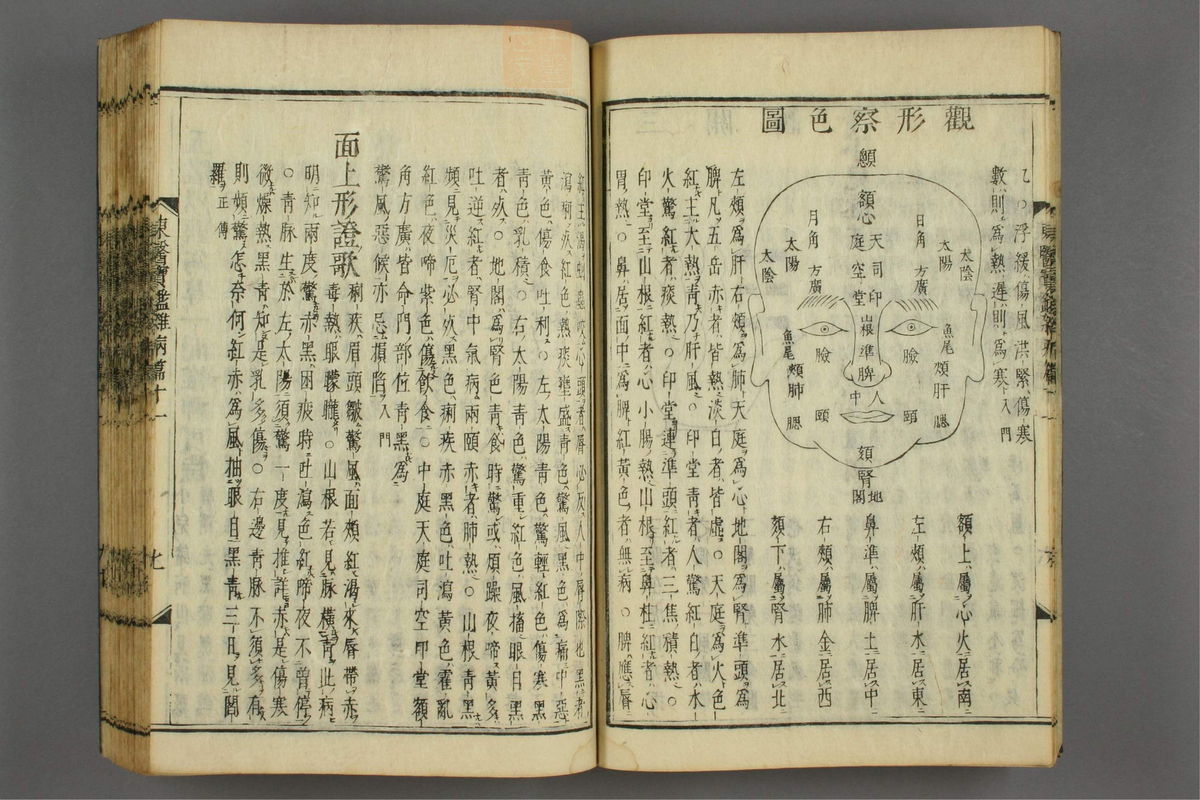 乀○浮緩傷風洪緊傷寒
數則爲熱遲則爲寒入門
觀形察色圖
顖
額心
天庭
司空
印堂
日角
月角
太陽
太陽
太陰
太陰
方廣
方廣
山根
準脾
人中
魚尾
魚尾
臉
臉
頰肝
頰肺
腮
腮
頤
頤
頦腎
地閣
額上屬心火居南
左頰屬肝木居東
鼻準屬脾土居中
右頰屬肺金居西
頦下屬腎水居北
左頰爲肝右頰爲肺天庭爲心地閣爲腎準頭爲
脾凡五岳赤者皆熱淡白者皆虛○天庭爲火色
紅主大熱青乃肝風○印堂青者人驚紅白者水
火驚紅者痰熱○印堂連準頭紅者三焦積熱○
印堂至山根紅者心小腸熱山根至鼻柱紅者心
胃熱○鼻居面中爲脾紅黃色者無病○脾應脣
瀉痢疾紅色熱痰壅盛青色驚風黑色爲痛中惡
黃色傷食吐利○左太陽青色驚輕紅色傷寒黑
青色乳積○右太陽青色驚重紅色風搐眼目黑
者死○地閣爲腎色青食時驚或煩躁夜啼黃多
吐逆紅者腎中氣病兩頤赤者肺熱○山根青黑
頻見災厄必死黑色痢疾赤黑色吐瀉黃色霍亂
紅色夜啼紫色傷飲食○中庭天庭司空印堂額
角方廣皆命門部位青黑爲
驚風惡候亦忌損陷入門
面上形證歌
痢疾眉頭皺驚風面頰紅渴來脣帶赤
毒熱眼朦朧○山根若見脈橫青此病
明知兩度驚赤黑困疲時吐瀉色紅啼夜不曾停
○青脈生於左太陽須驚一度見推詳赤是傷寒
微燥熱黑青知是乳多傷○右邊青脈不須多有
則頻驚怎奈何紅赤爲風抽眼目黑青三日見閻
羅正傳
東醫寶鑑雜病篇十一